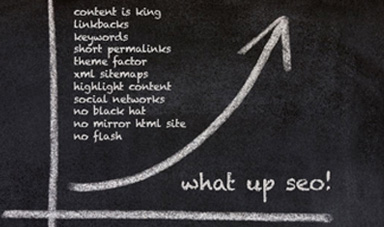 content is king
linkbacks
keywords
short permalinks
theme factor
xml sitemaps
highlight content
social networks
no black hat
no mirror html site
no flash
what up seo!